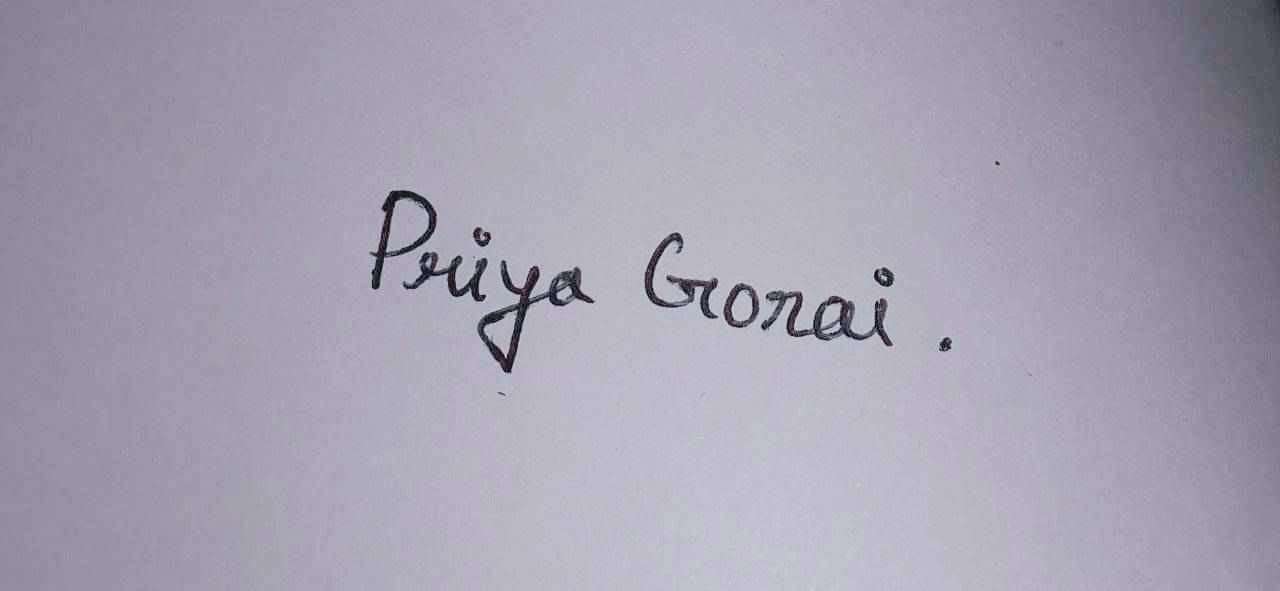 Priya Gorai .